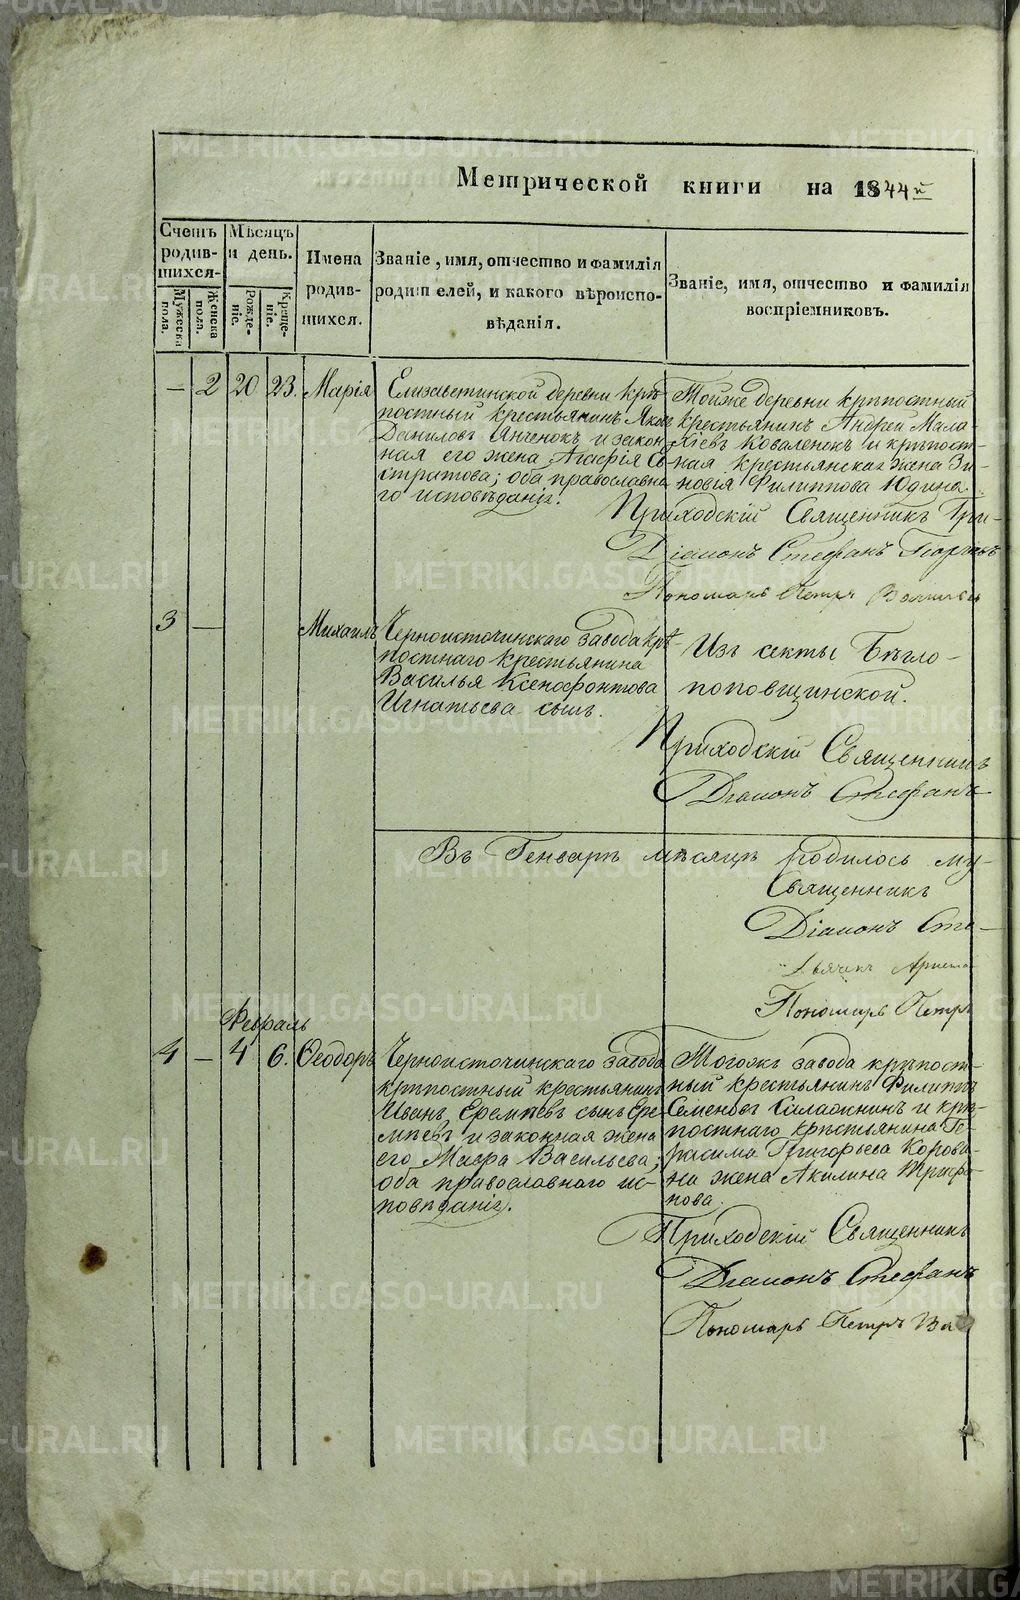 Метрической книги на 1844й
Счетъ родившихся.
Мужеска пола.
Женска пола.
Мѣсяцъ и день.
Рожденіе.
Крещеніе.
Имена родившихся.
Званіе, имя, отчество и фамилія
родителей, и какого вѣроиспо-
вѣданія.
Званіе, имя, отчество и фамилія
воспріемниковъ.
— 2 20 23. Марія
Елизаветинской деревни крѣ-
постный крестьянинъ Яковъ
Даниловъ Янченокъ и закон-
ная его жена Агафія
стратова; оба православна-
го исповѣданія.
Тойже деревни крѣпостный
крестьянинъ Андрей Мала-
хіевъ Коваленокъ и крѣпост-
ная крестьянская жена Зи-
новія Филиппова Юдина.
Приходскій Священникъ Гри-
Діаконъ Стефанъ
Пономарь Петръ
3 — Михаилъ
Черноисточинскаго завода крѣ-
постнаго крестьянина
Василья Ксенофонтова
Игнатьева сынъ.
Изъ секты Бѣгло-
поповщинской.
Приходскій Священникъ
Діаконъ Стефанъ
Въ Генварѣ мѣсяцѣ родилось му-
Священникъ
Діаконъ Сте-
Дьячекъ
Пономарь Петръ
Февраль
4 — 4 6. Ѳеодоръ
Черноисточинскаго завода
крѣпостный крестьянинъ
Иванъ Еремѣевъ сынъ Ере-
мѣевъ и законная жена
его Мавра Васильева;
оба православнаго ис-
повѣданія.
Тогожъ завода крѣпост-
ный крестьянинъ Филиппъ
Семеновъ и крѣ-
постнаго крестьянина Ге-
расима Григорьева Корови-
на жена Акилина Трифо-
нова.
Приходскій Священникъ
Діаконъ Стефанъ
Пономарь Петръ Ва
METRIKI.GASO-URAL.RU